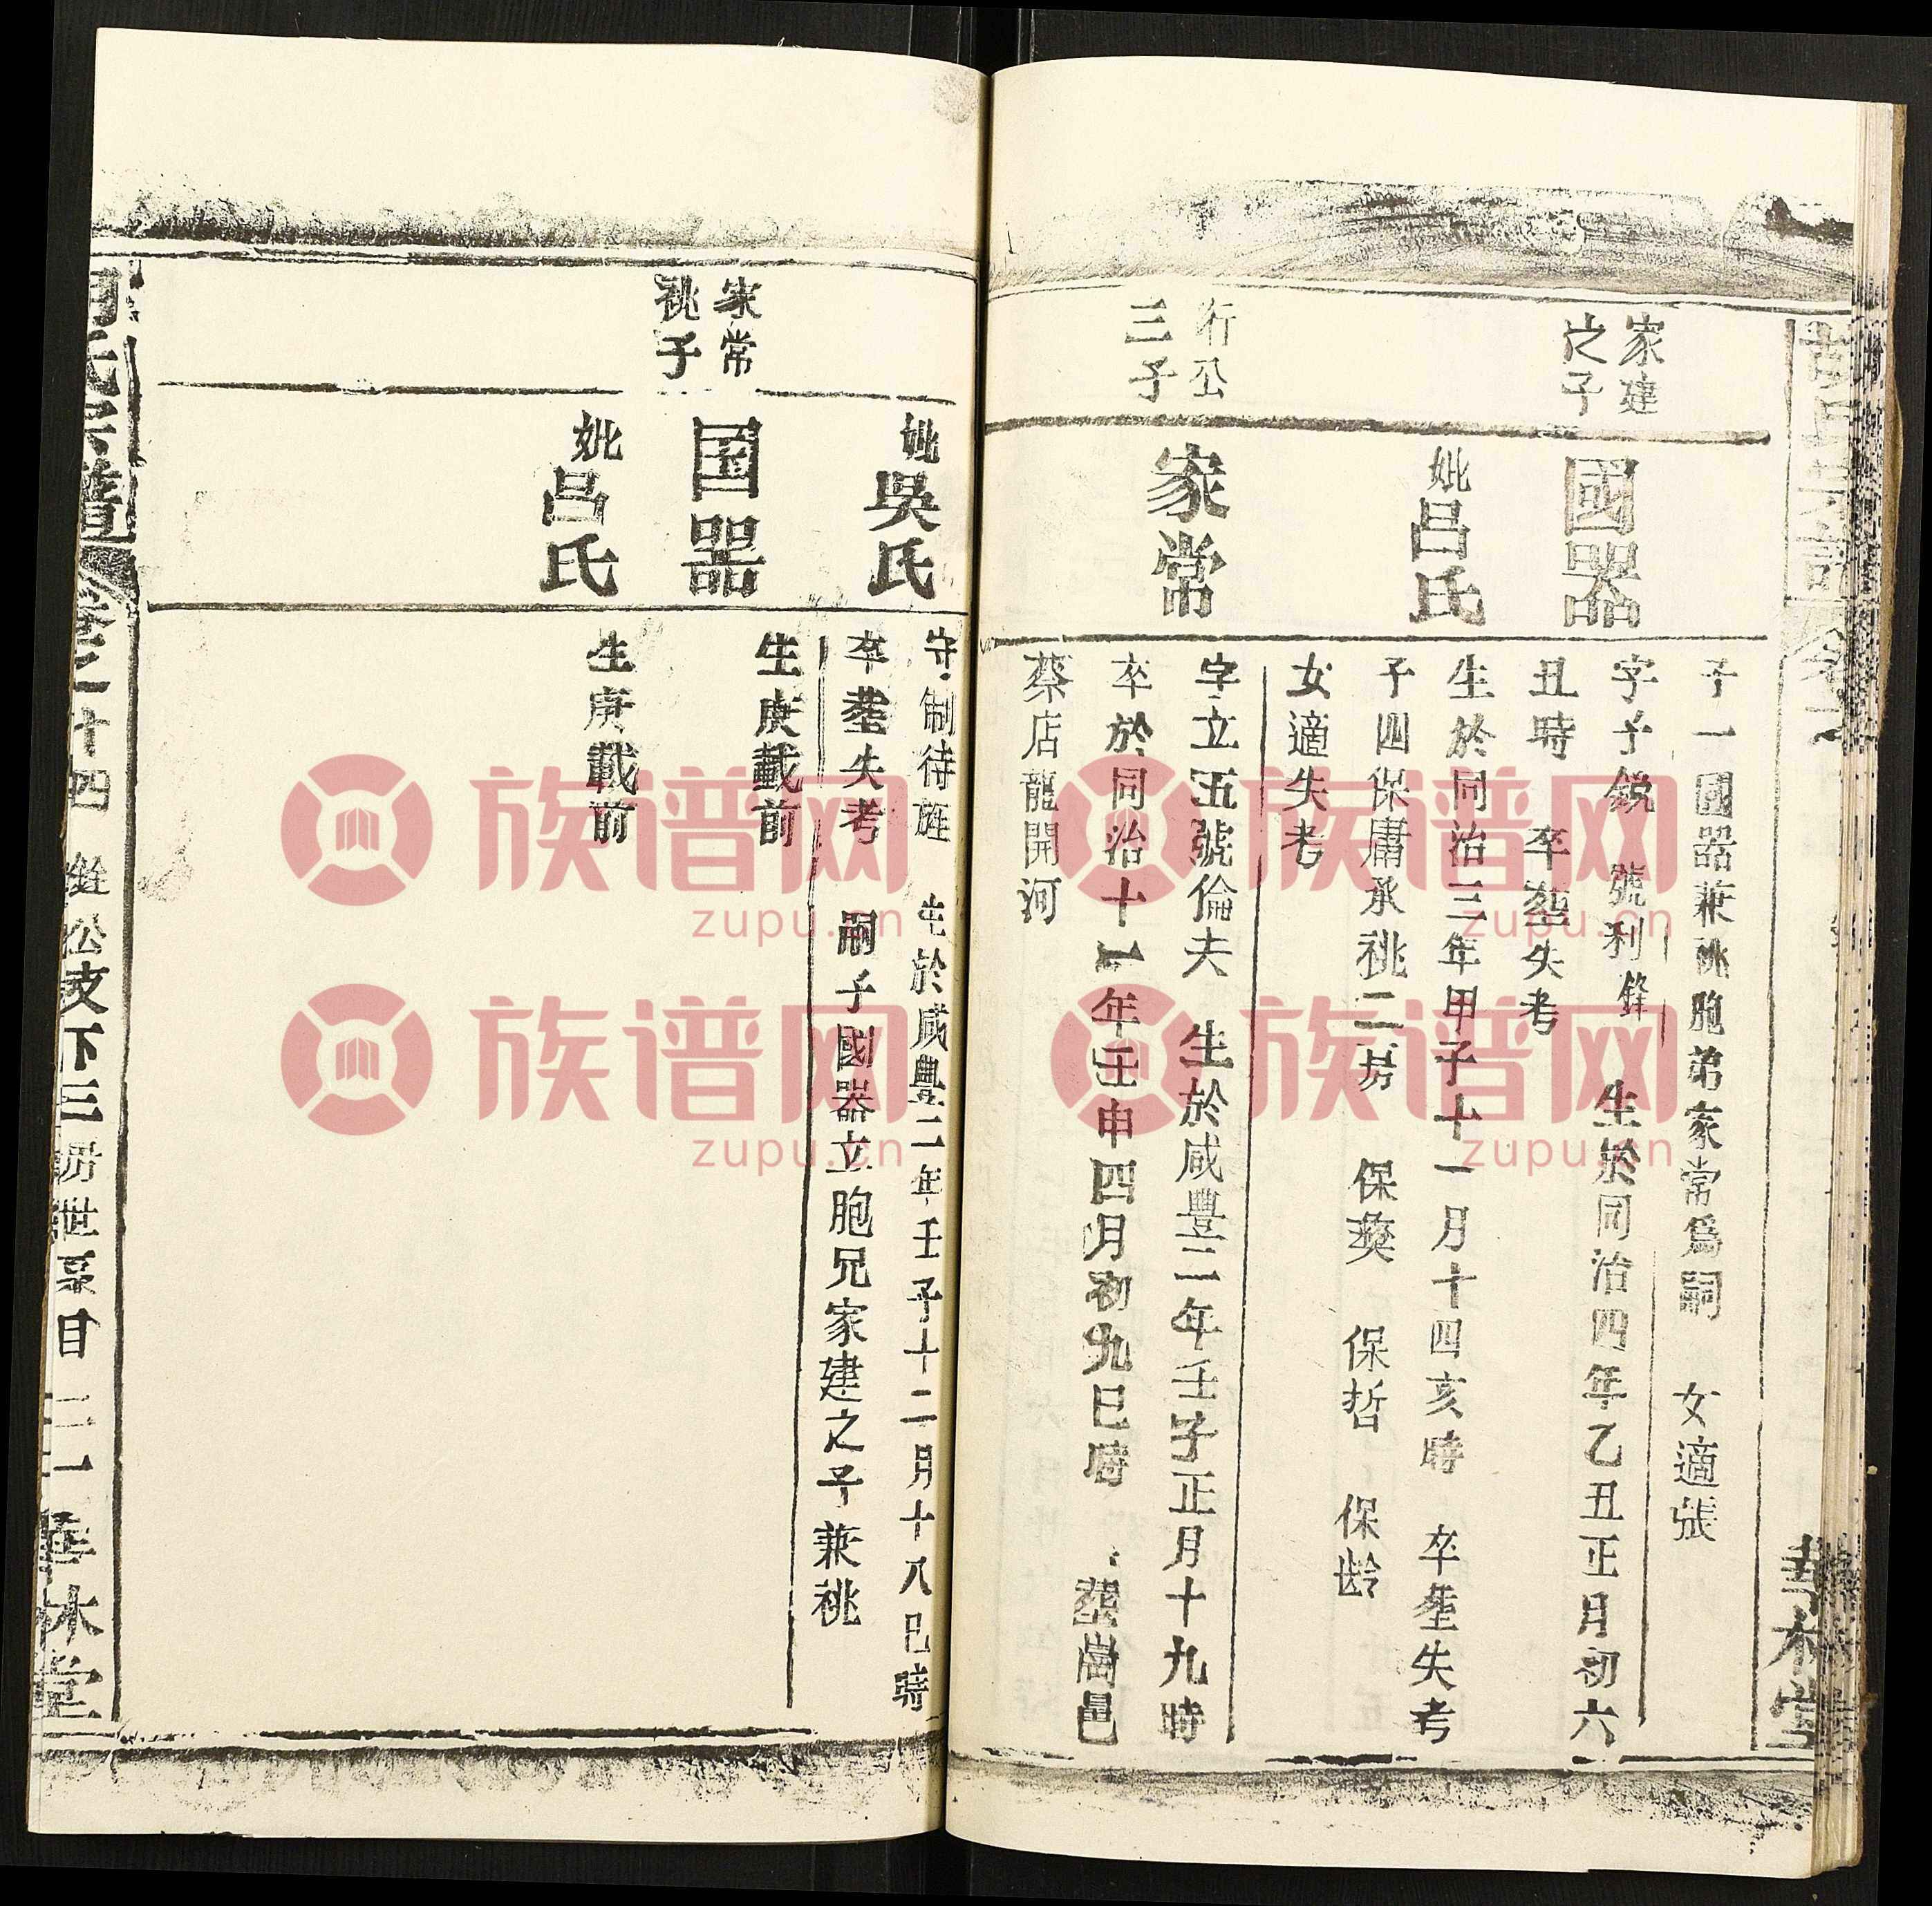 子一國器兼祧胞弟家常爲嗣 女適張
家建
之子
國器
字子銳 號利鋒 生於同治四年乙丑正月初六
丑時 卒塟失考
妣呂氏
生於同治三年甲子十一月十四亥時 卒塟失考
子四保庸承祧二房 保奭 保哲 保齡
女適失考
行公
三子
家常
字立五號倫夫 生於咸豐二年壬子正月十九時
卒於同治十一年壬申四月初九巳時 塟崗邑
蔡店龍開河
華林堂
妣吳氏
守制待旌 生於咸豐二年壬子十二月十八巳時
卒塟失考 嗣子國器立胞兄家建之子兼祧
家常
祧子
国器
生庚載前
妣呂氏
生庚載前
氏宗譜
卷之十四
公支下三房世系目
華林堂
族谱网
zupu.cn
族谱网
zupu.cn
族谱网
zupu.cn
族谱网
zupu.cn